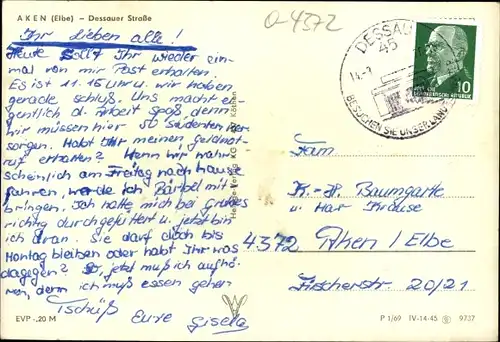 AKEN (Elbe) – Dessauer Straße
O-4372
Ihr lieben alle!
Heute sollt Ihr wieder ein-
mal von mir Post erhalten.
Es ist 11.15 Uhr u. wir haben
gerade Schluß. Uns macht ei-
gentlich d. Arbeit spaß, denn
wir müssen hier 50 Studenten ver-
sorgen. Habt Ihr meinen geldnot-
ruf erhalten? Wenn wir wahr-
scheinlich am Freitag nach hause
fahren, werde ich Bärbel mit-
bringen. Ich hatte mich bei
richtig durchgefuttert u. jetzt bin
ich dran. Sie darf doch bis
Montag bleiben oder habt Ihr was
dagegen? So, jetzt muß ich aufhö-
ren, denn ich muß essen gehen
Tschüß Eure Gisela
DESSAU
45
BESUCHEN SIE UNSER
10
Fam.
K.-H. Baumgarte
u. Har Krause
4372 Aken/Elbe
Fischerstr. 20/21
EVP -,20 M
P 1/69 IV-14-45 9737